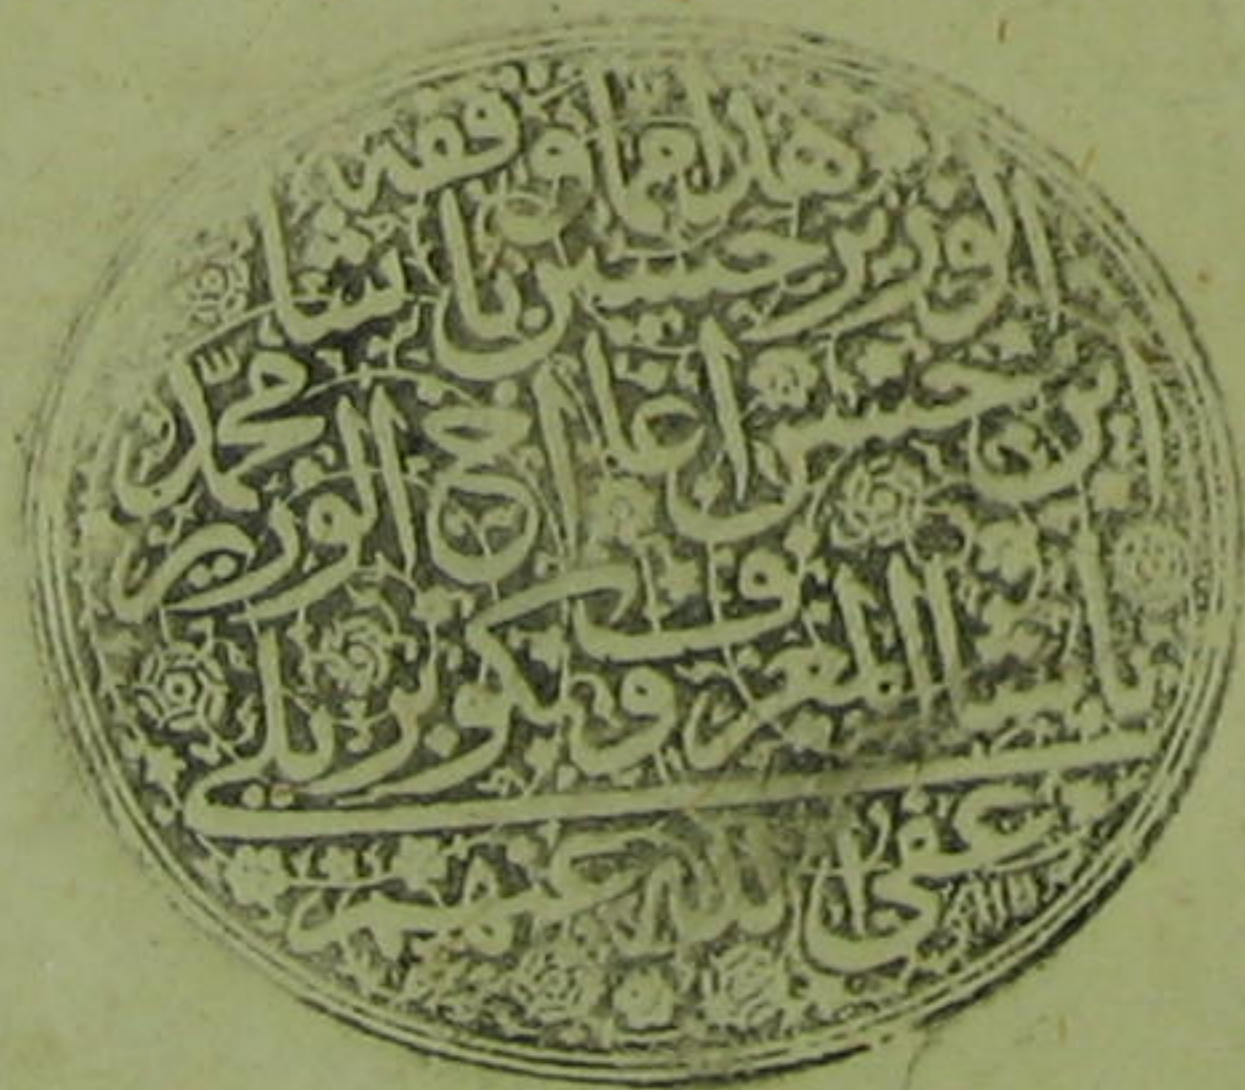 هذا ما وقفه
الوزير حسين باشا
ابن حسن اغا اخ الوزير محمّد
باشا المعروف بكوبريلي
عفى الله عنهم